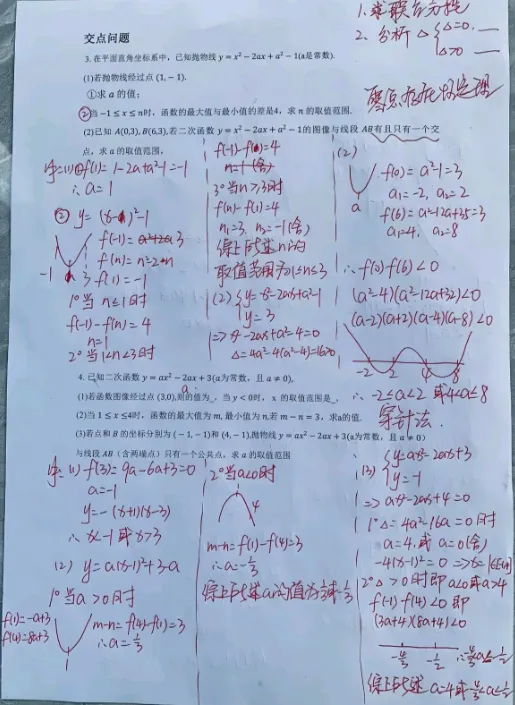 1. 求联立方程
2. 分析 △ { △=0.
△>0
零点存在性定理
交点问题
3. 在平面直角坐标系中，已知抛物线 y = x² − 2ax + a² − 1(a是常数).
(1)若抛物线经过点 (1, −1).
①求 a 的值；
②当 −1 ≤ x ≤ n时，函数的最大值与最小值的差是4，求 n 的取值范围.
(2)已知 A(0,3), B(6,3),若二次函数 y = x² − 2ax + a² − 1的图像与线段 AB有且只有一个交
点，求 a 的取值范围，
解=(1)①f(1)=1-2a+a²-1=-1
∴ a=1
② y=(x-1)²-1
f(-1)=3
f(n)=n²-2n
-1 3 f(1)=-1
1° 当 n≤1时
f(-1)-f(n)=4
n=1
2° 当1<n≤3时
f(-1)-f(1)=4
n=1 (舍)
3° 当n>3时
f(n)-f(1)=4
n₁=3, n₂=-1(舍)
综上所述n的
取值范围为1≤n≤3
(2) { y=x²-2ax+a²-1
y=3
=> x²-2ax+a²-4=0
△=4a²-4(a²-4)=16>0
(2)
a
f(0)=a²-1=3
a₁=-2, a₂=2
f(6)=a²-12a+35=3
a₁=4, a₂=8
∴ f(0)·f(6)<0
(a²-4)(a²-12a+32)<0
(a-2)(a+2)(a-4)(a-8)<0
-2 2 4 8
∴ -2≤a<2 或4<a≤8
穿针法.
4. 已知二次函数 y = ax² − 2ax + 3(a为常数，且 a ≠ 0),
(1)若函数图像经过点 (3,0),则a的值为_，当 y < 0时，x 的取值范围是_，
(2)当 1 ≤ x ≤ 4时，函数的最大值为 m, 最小值为 n,若 m − n = 3，求a的值.
(3)若点和 B 的坐标分别为 (−1, −1)和 (4, −1),抛物线 y = ax² − 2ax + 3(a为常数，且 a ≠ 0)
与线段 AB(含两端点) 只有一个公共点，求 a 的取值范围
解=(1) f(3)=9a-6a+3=0
a=-1
y=-(x+1)(x-3)
∴ x<-1 或 x>3
(2) y=a(x-1)²+3-a
1° 当 a>0时
f(1)=-a+3
f(4)=8a+3
m-n=f(4)-f(1)=3
∴ a=1/3
1
2° 当a<0时
4
m-n=f(1)-f(4)=3
∴ a=-1/3
综上所述a的值为1/3或-1/3
(3) { y=ax²-2ax+3
y=-1
=> ax²-2ax+4=0
1° △=4a²-16a=0时
a=4. 或 a=0(舍)
2° △>0时即a<0或a>4
f(-1)·f(4)<0 即
(3a+4)(8a+4)<0
-4/3 -1/2
综上所述 a=4或-4/3<a≤-1/2